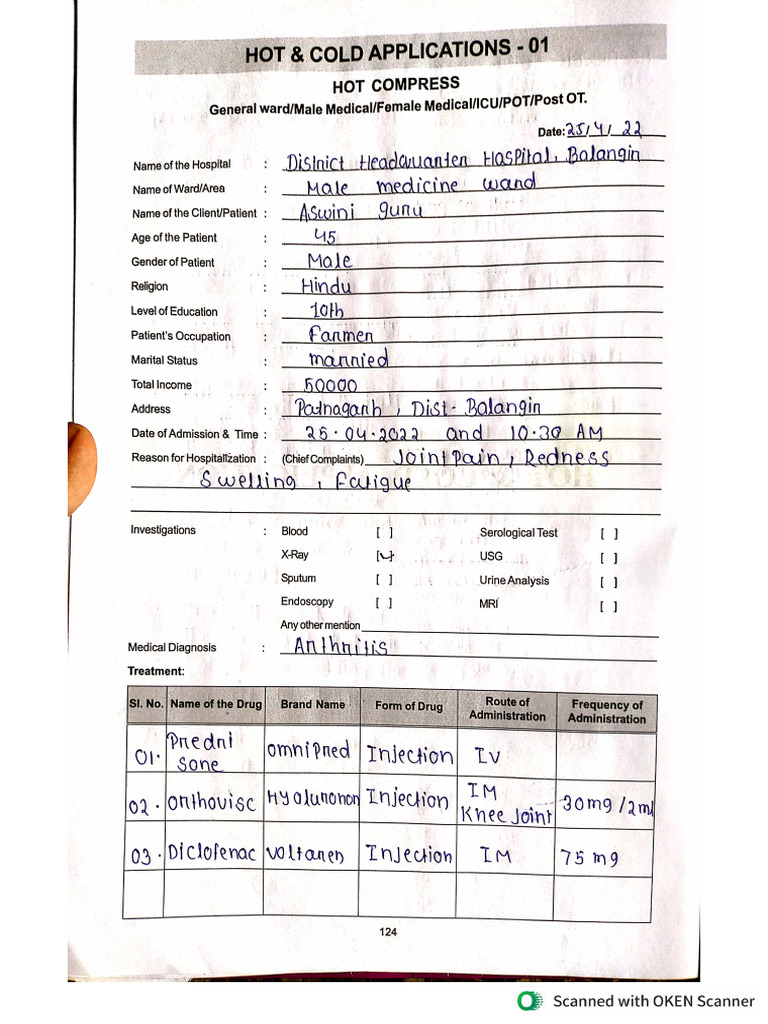 HOT & COLD APPLICATIONS - 01
HOT COMPRESS
General ward/Male Medical/Female Medical/ICU/POT/Post OT.
Date: 25/4/22
Name of the Hospital : District Headquanten Haspital, Balangin
Name of Ward/Area : Male medicine wand
Name of the Client/Patient : Aswini gunu
Age of the Patient : 45
Gender of Patient : Male
Religion : Hindu
Level of Education : 10th
Patient's Occupation : Fanmen
Marital Status : mannied
Total Income : 50000
Address : Patnaganh, Dist- Balangin
Date of Admission & Time : 25.04.2022 and 10.30 AM
Reason for Hospitalization : (Chief Complaints) Joint Pain, Redness
Swelling, Fatigue
Investigations : Blood [ ] Serological Test [ ]
X-Ray [✓] USG [ ]
Sputum [ ] Urine Analysis [ ]
Endoscopy [ ] MRI [ ]
Any other mention
Medical Diagnosis : Anthnitis
Treatment:
Sl. No. Name of the Drug Brand Name Form of Drug Route of Administration Frequency of Administration
01. Pnedni sone omnipned Injection IV
02. Onthovisc Hyalunonon Injection IM Knee Joint 30mg/2ml
03. Diclofenac Voltanen Injection IM 75 mg
124
Scanned with OKEN Scanner